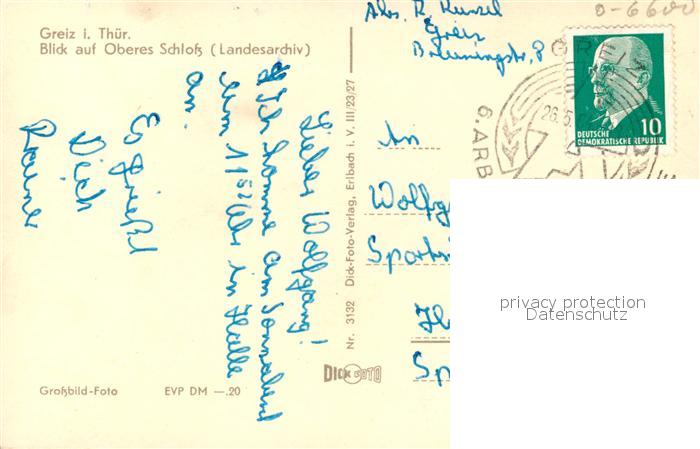 Greiz i. Thür.
Blick auf Oberes Schloß (Landesarchiv)
Abs. R. Kunzel
Greiz
Breuningstr. 8
0-6600
GREIZ
26.5.
6. ARB
10
DEUTSCHE
DEMOKRATISCHE REPUBLIK
Lieber Wolfgang!
Ich komme am Sonnabend
um 11 52 Uhr in Halle
an.
Es grüßt
Dich
Rainer
Nr. 3132 Dick-Foto-Verlag, Erlbach i. V. III/23/27
An
Wolfg
Sport
H
Sp
DICK FOTO
Großbild-Foto
EVP DM —.20
privacy protection
Datenschutz